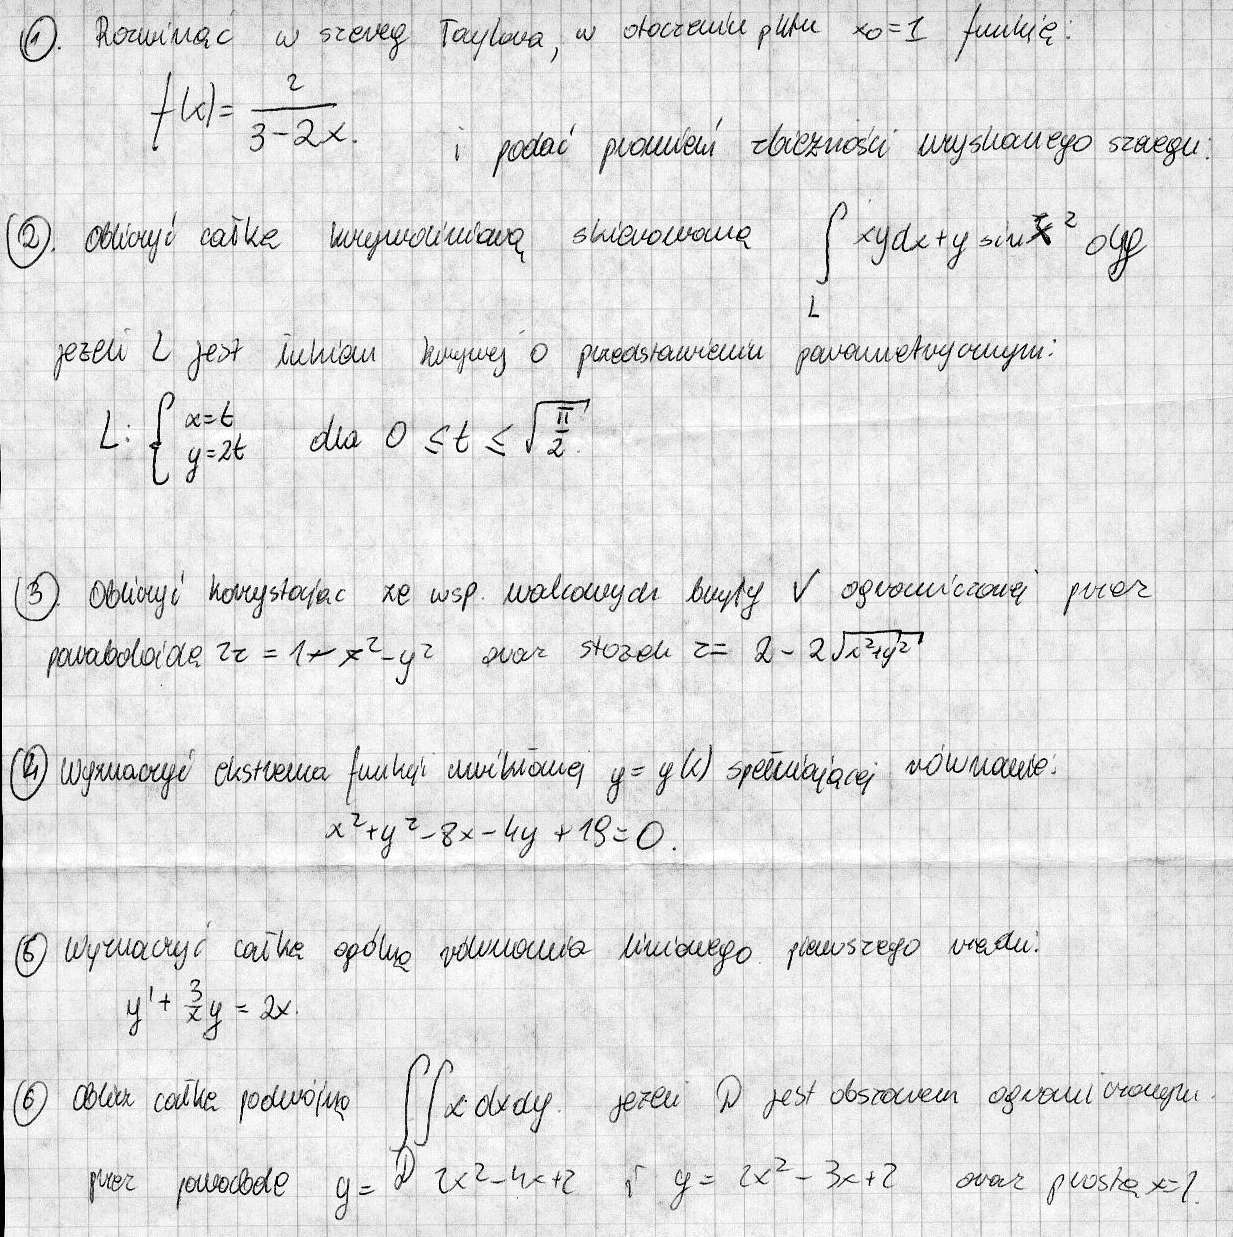 1. Rozwinąć w szereg Taylora, w otoczeniu pktu x₀=1 funkcję:
f(x)= 2/(3-2x). i podać promień zbieżności uzyskanego szeregu:
2. Obliczyć całkę krzywoliniową skierowaną ∫_L xydx+y sin x² dy
jeżeli L jest łukiem krzywej o przedstawieniu parametrycznym:
L: { x=t y=2t dla 0 ≤ t ≤ √(π/2).
3. Obliczyć korzystając ze wsp. walcowych bryły V ograniczonej przez
paraboloidę 2z = 1-x²-y² oraz stożek z= 2-2√(x²+y²)
4 Wyznaczyć ekstrema funkcji uwikłanej y=y(x) spełniającej równanie:
x²+y²-8x-4y+19=0.
5 Wyznaczyć całkę ogólną równania liniowego pierwszego rzędu:
y'+ 3/x y = 2x.
6 Oblicz całkę podwójną ∫∫_D x dxdy. jeżeli D jest obszarem ograniczonym
przez parabolę y= 2x²-4x+2 i y= 2x²-3x+2 oraz prostą x=1.